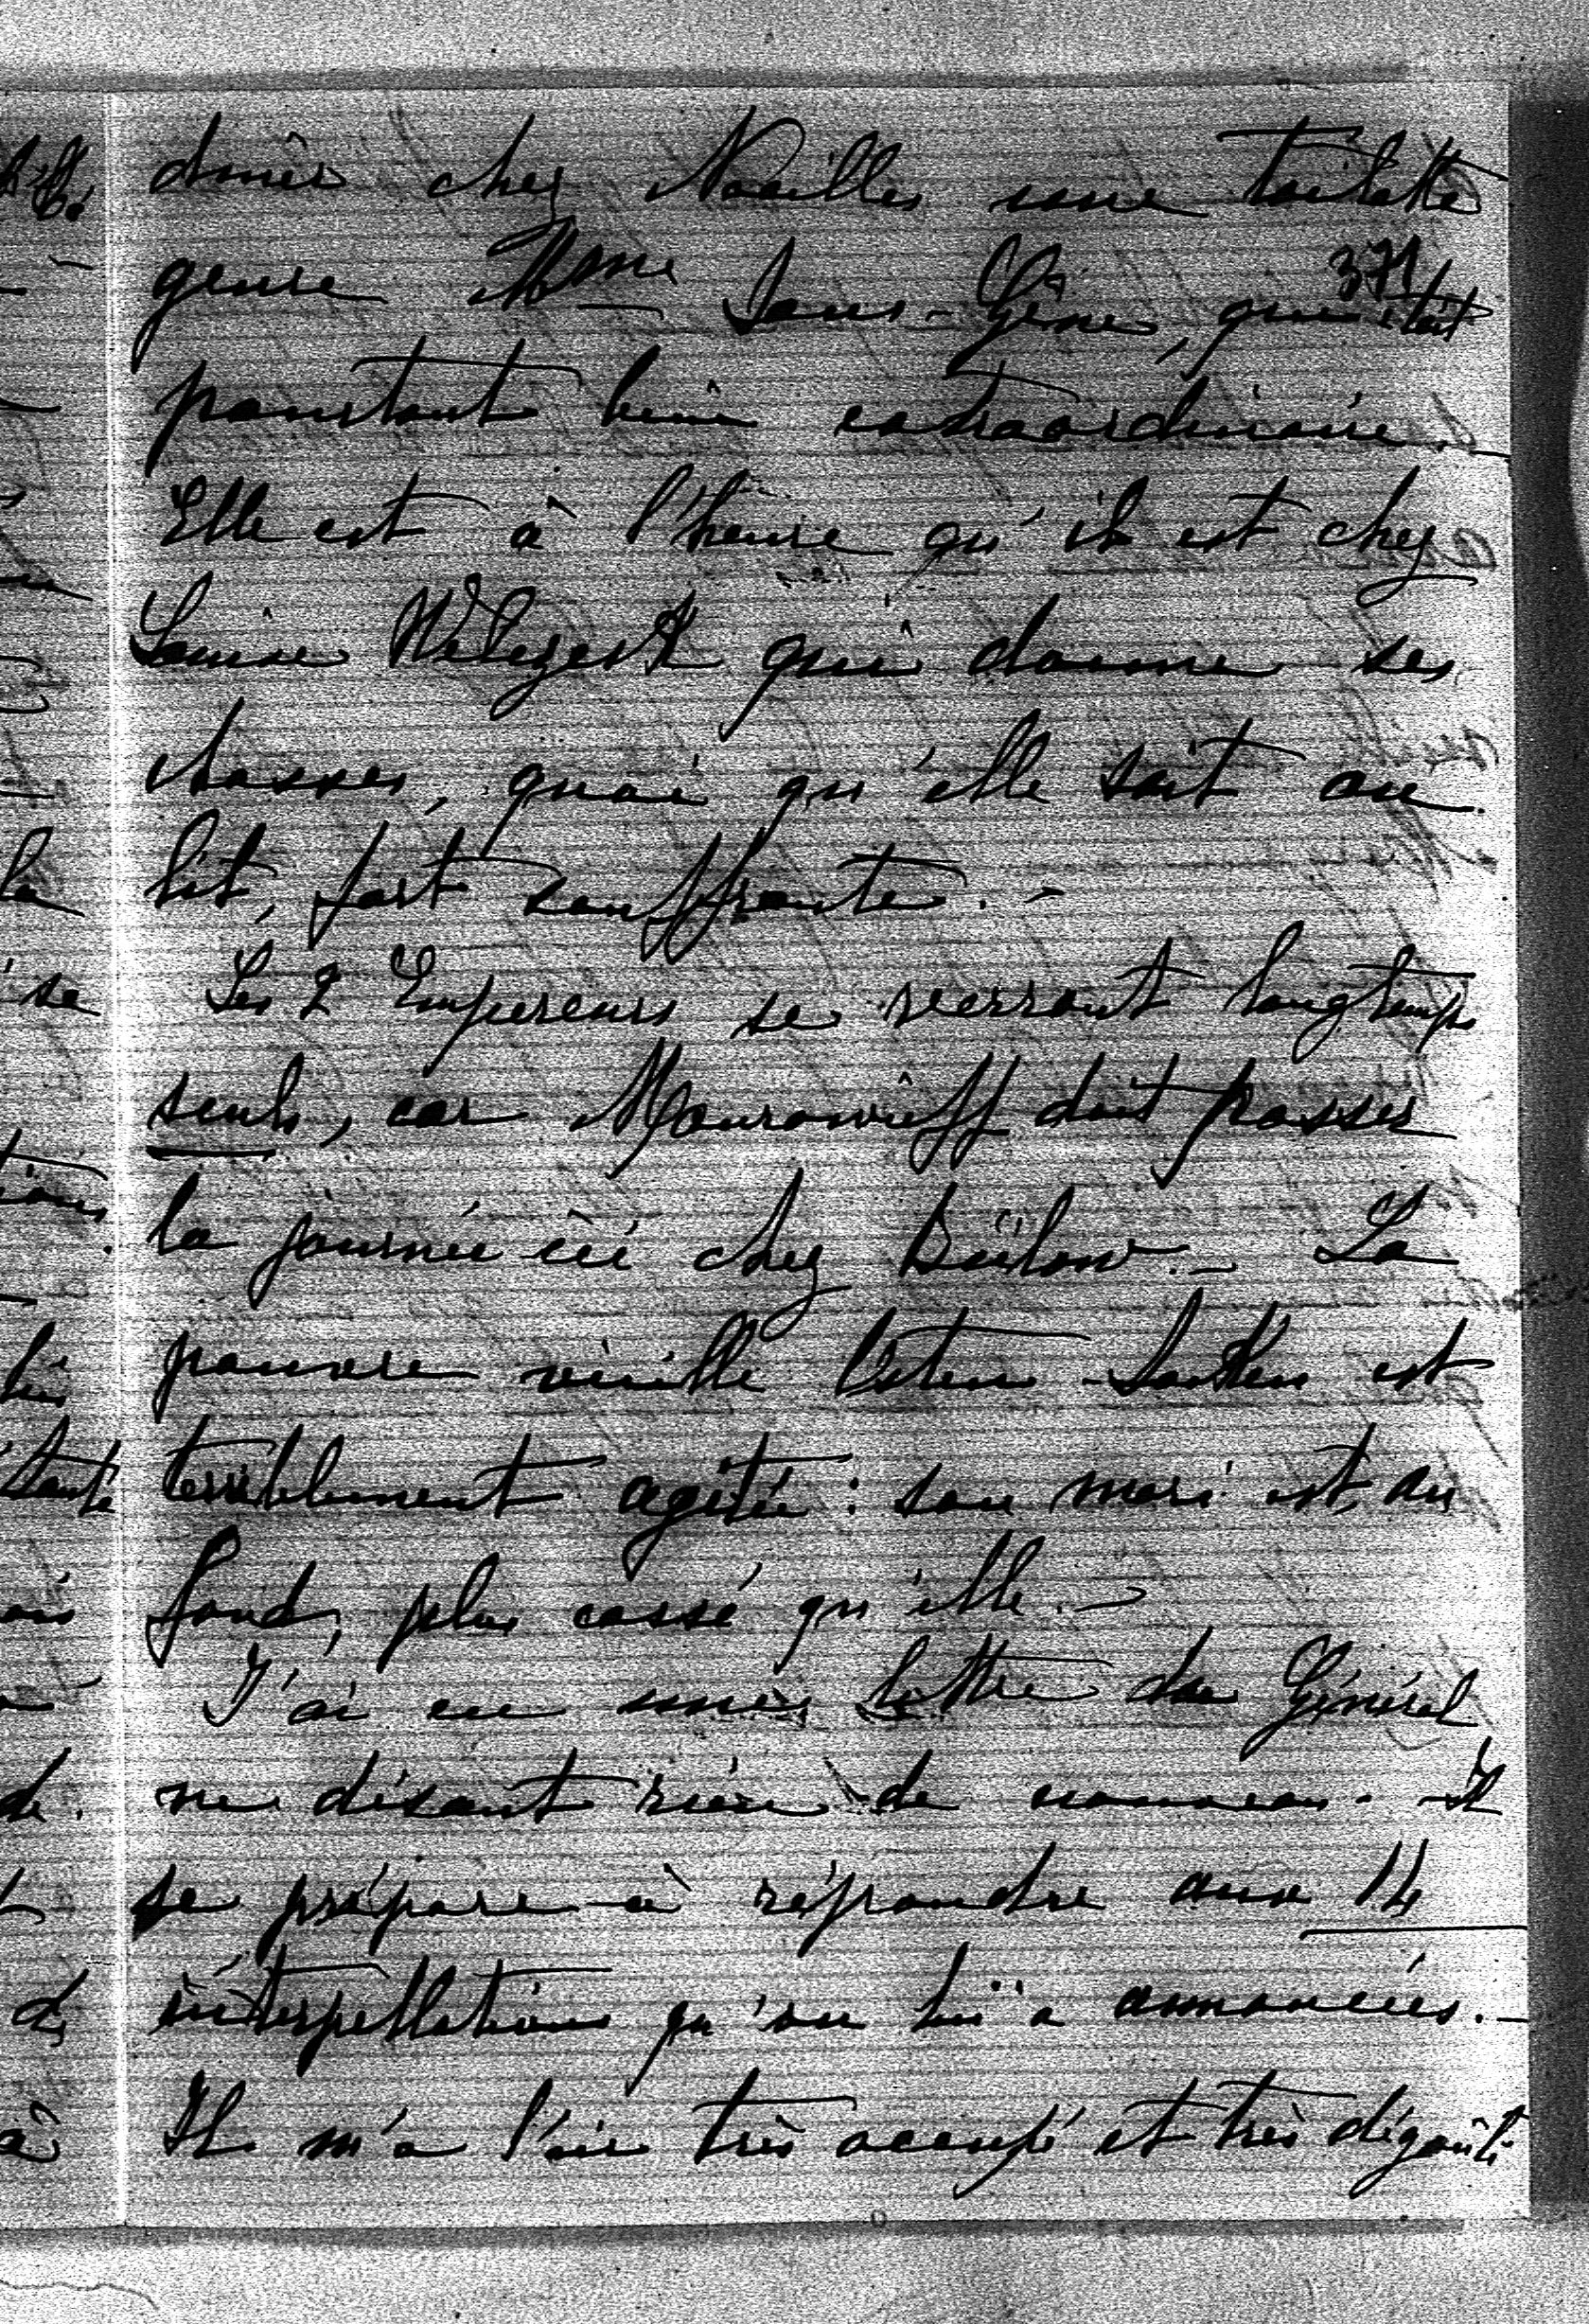 diner chez Noailles une toilette
371
genre Mme Sans-Gêne, qui était
pourtant bien extraordinaire.
Elle est à l'heure qu'il est chez
Louise qui donne ses
chasses, quoi qu'elle soit au
lit, fort souffrante. -
Les 2 Empereurs se verront longtemps
seuls, car Mourawieff doit passer
la journée ici chez Bülow. - La
pauvre vieille Osten-Sacken est
terriblement agitée : son mari est, au
fond, plus cassé qu'elle. -
J'ai eu une lettre du Général
ne disant rien de nouveau. Il
se prépare à répondre aux 14
interpellations qu'on lui a annoncées. -
Il m'a l'air très occupé et très dégoûté